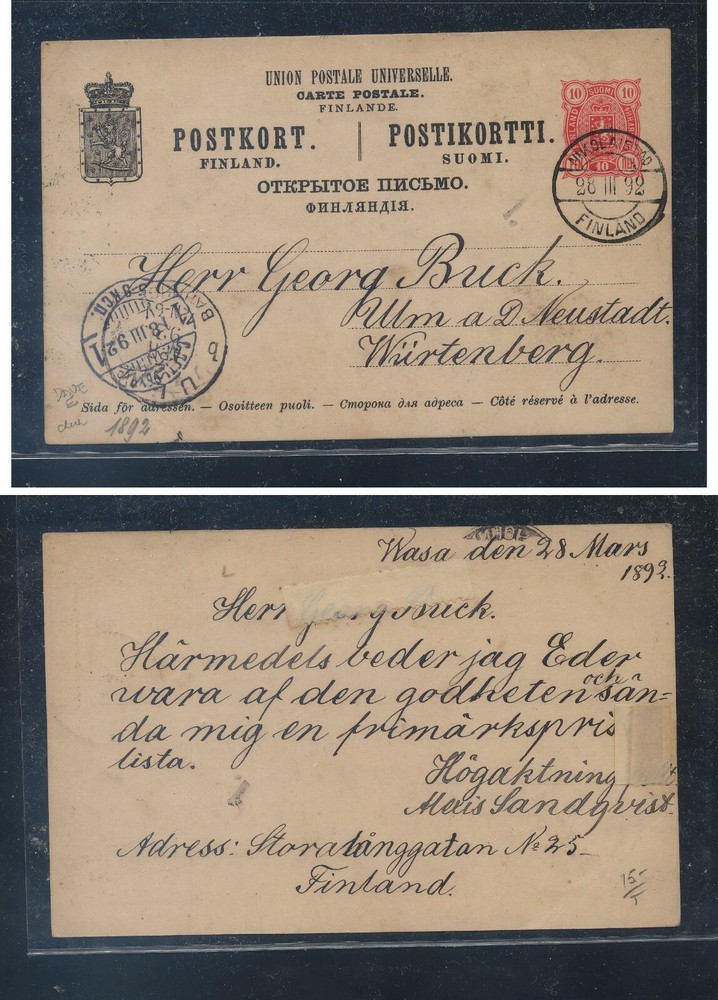 UNION POSTALE UNIVERSELLE.
CARTE POSTALE.
FINLANDE.
POSTKORT. | POSTIKORTTI.
FINLAND. SUOMI.
ОТКРЫТОЕ ПИСЬМО.
ФИНЛЯНДІЯ.
10 SUOMI 10
10
28 III 92
FINLAND
Herr Georg Buck.
Ulm a D. Neustadt.
Würtenberg.
Sida för adressen. — Osoitteen puoli. — Сторона для адреса — Côté réservé à l'adresse.
1892
Wasa den 28 Mars
1892.
Herr Georg Buck.
Härmedels beder jag Eder
wara af den godheten och sän-
da mig en frimärkspris
lista.
Högaktning
Sandqvist
Adress: Storalånggatan No 25
Finland.
15-